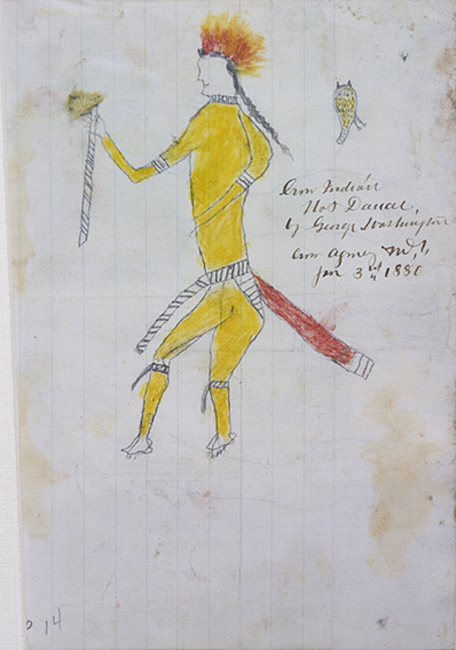 Crow Indian
Hot Dance,
by George Washington
Crow Agency M.T.
Jan 3rd 1880
14